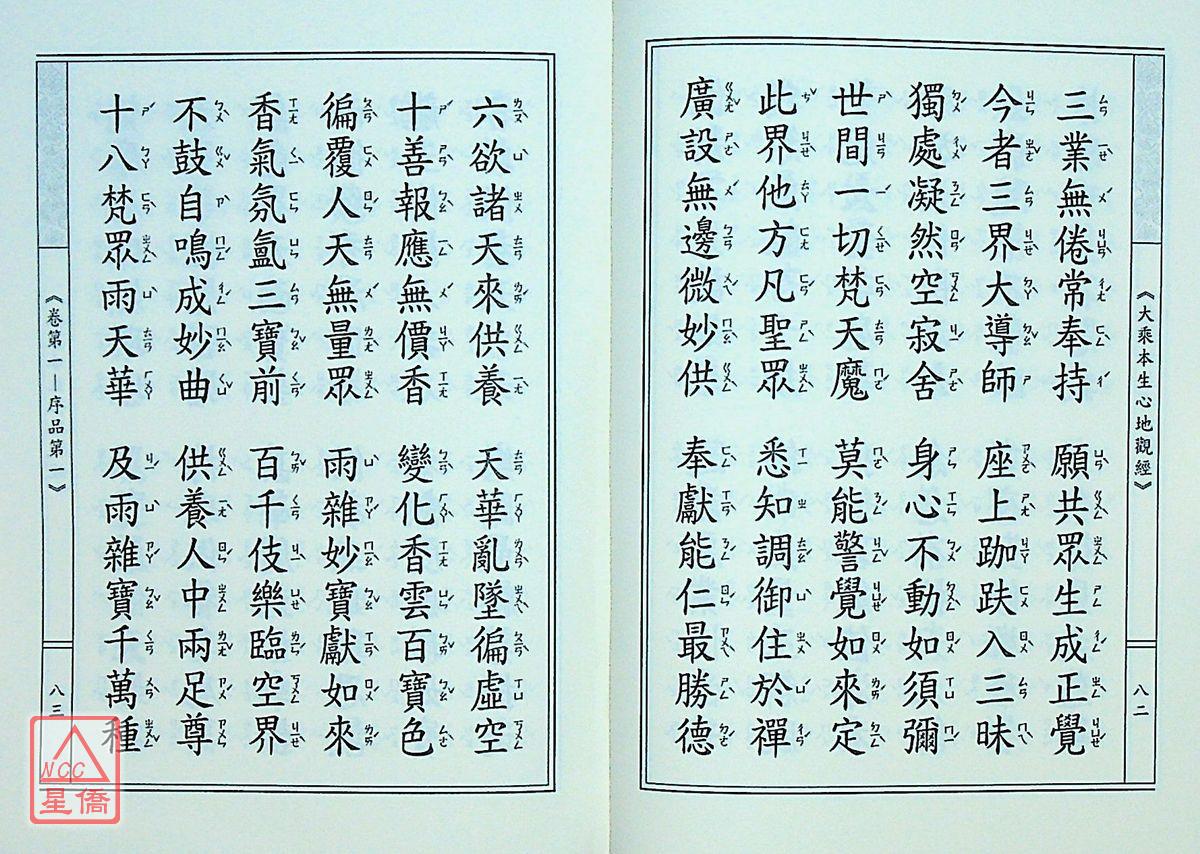 《大乘本生心地觀經》
八二
三業無倦常奉持　願共眾生成正覺
今者三界大導師　座上跏趺入三昧
獨處凝然空寂舍　身心不動如須彌
世間一切梵天魔　莫能警覺如來定
此界他方凡聖眾　悉知調御住於禪
廣設無邊微妙供　奉獻能仁最勝德
六欲諸天來供養　天華亂墜徧虛空
十善報應無價香　變化香雲百寶色
徧覆人天無量眾　雨雜妙寶獻如來
香氣氛氳三寶前　百千伎樂臨空界
不鼓自鳴成妙曲　供養人中兩足尊
十八梵眾雨天華　及雨雜寶千萬種
《卷第一—序品第一》
八三
NCC
星僑